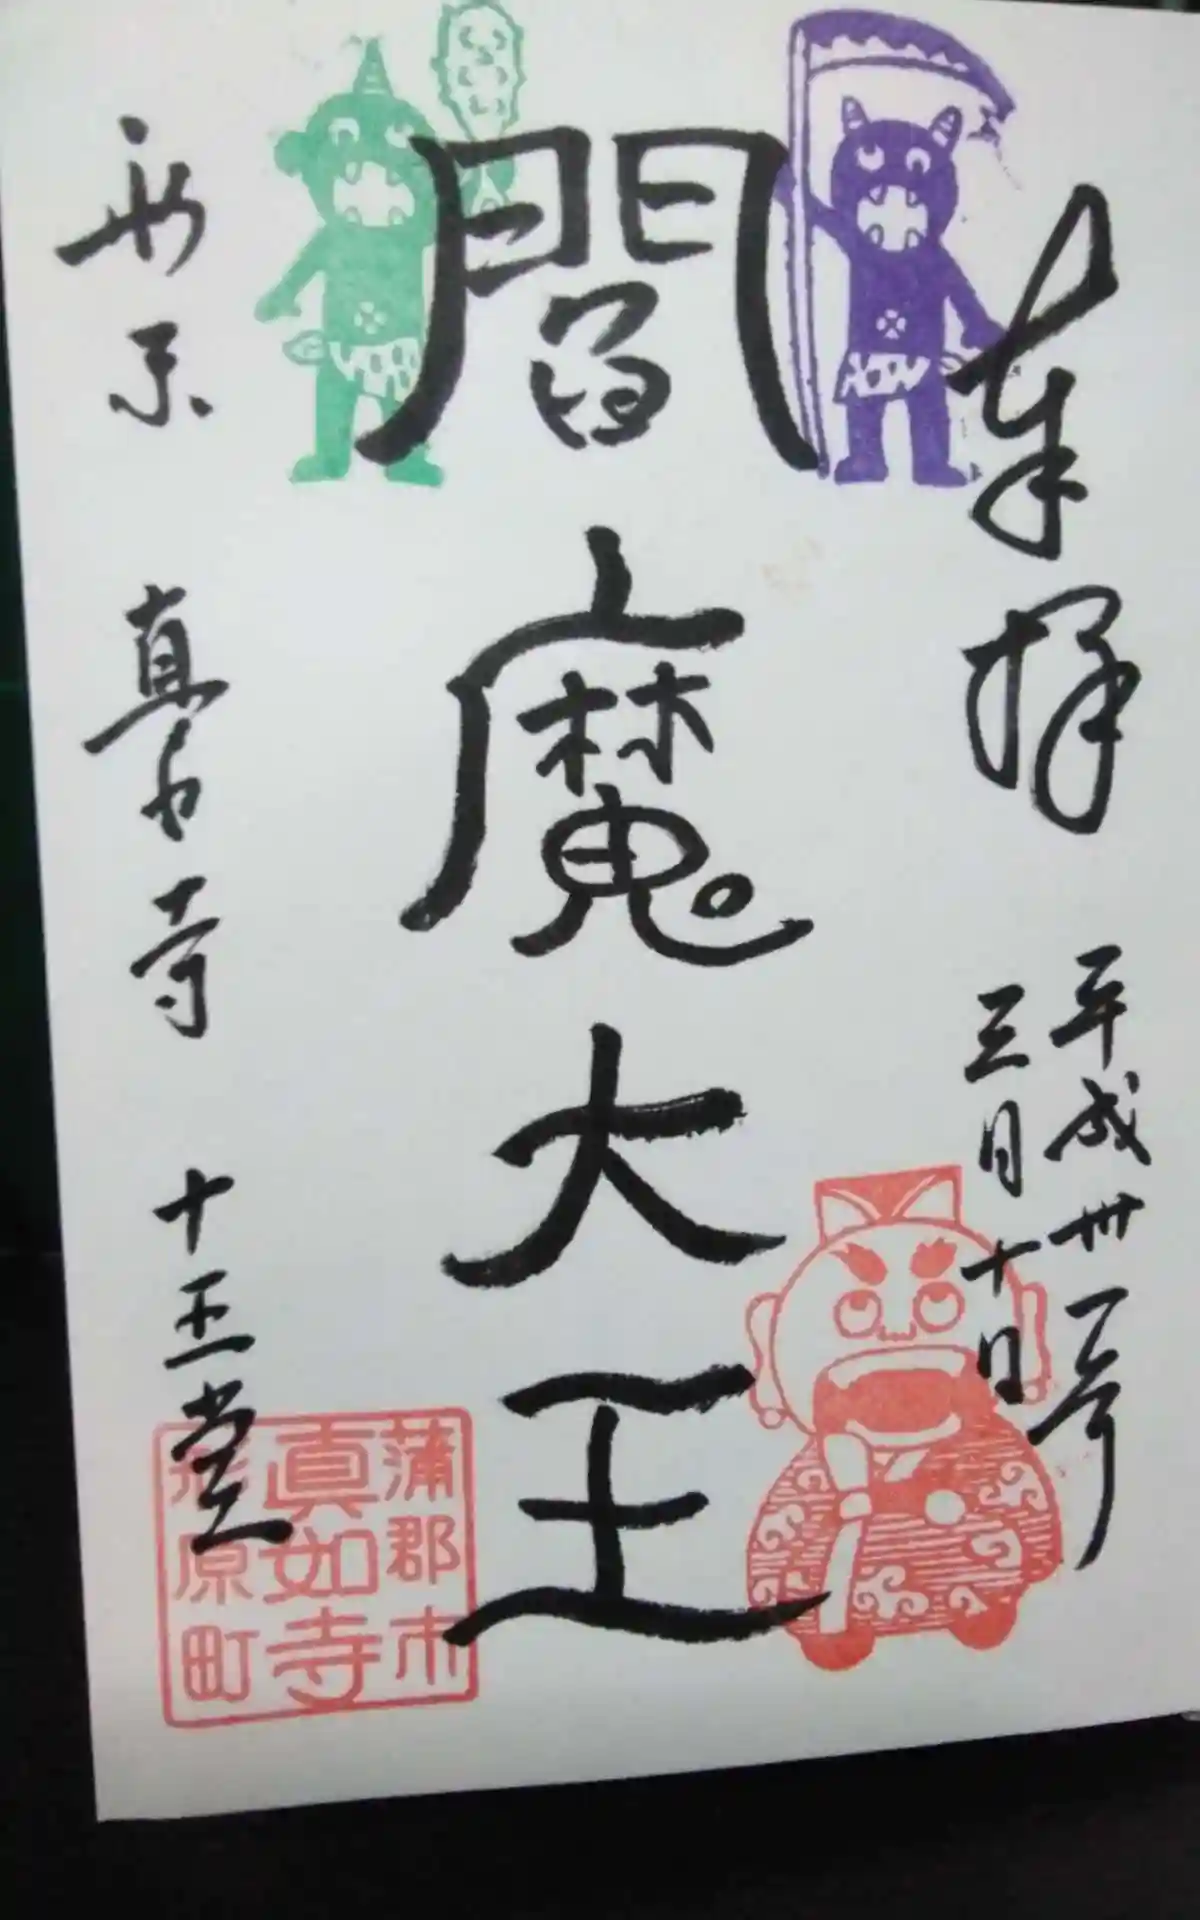 奉拝
平成卅一年
三月十日
閻魔大王
形原 真如寺 十王堂
蒲郡市
真如寺
形原町